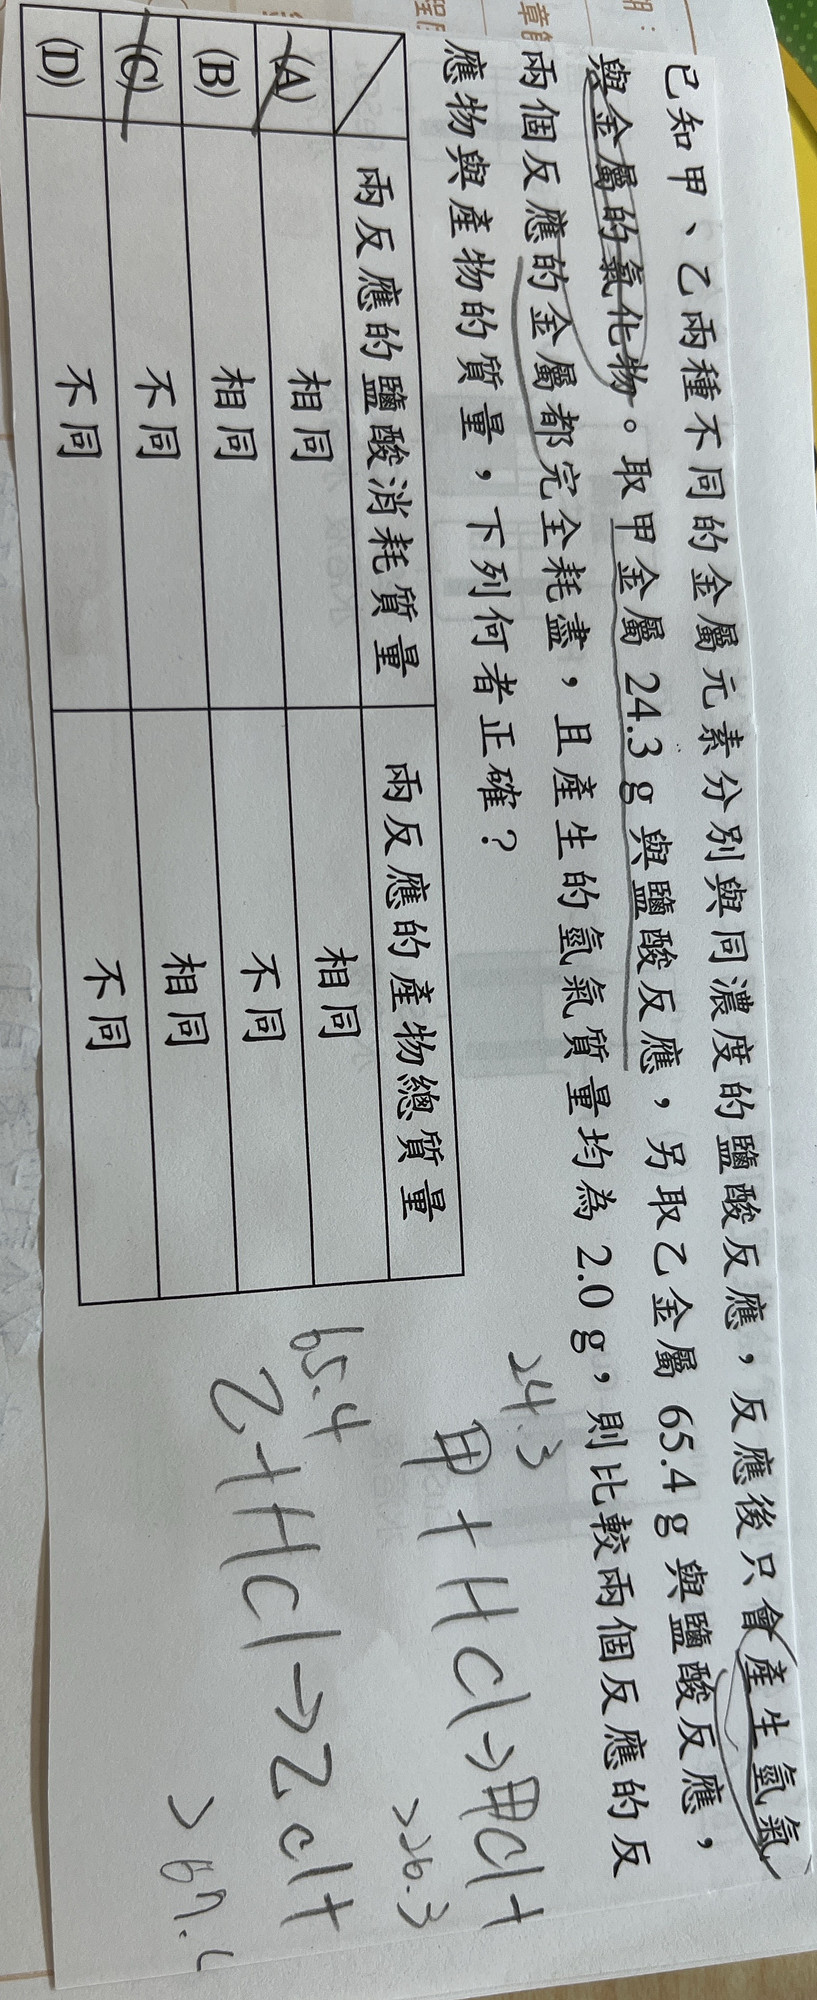 已知甲、乙兩種不同的金屬元素分別與同濃度的鹽酸反應，反應後只會產生氫氣
與金屬的氯化物。取甲金屬 24.3 g 與鹽酸反應，另取乙金屬 65.4 g 與鹽酸反應，
兩個反應的金屬都完全耗盡，且產生的氫氣質量均為 2.0 g，則比較兩個反應的反
應物與產物的質量，下列何者正確？
兩反應的鹽酸消耗質量 兩反應的產物總質量
(A) 相同 相同
(B) 相同 不同
(C) 不同 相同
(D) 不同 不同
24.3
甲+HCl→甲Cl+
>26.3
65.4
乙+HCl→乙Cl+
章